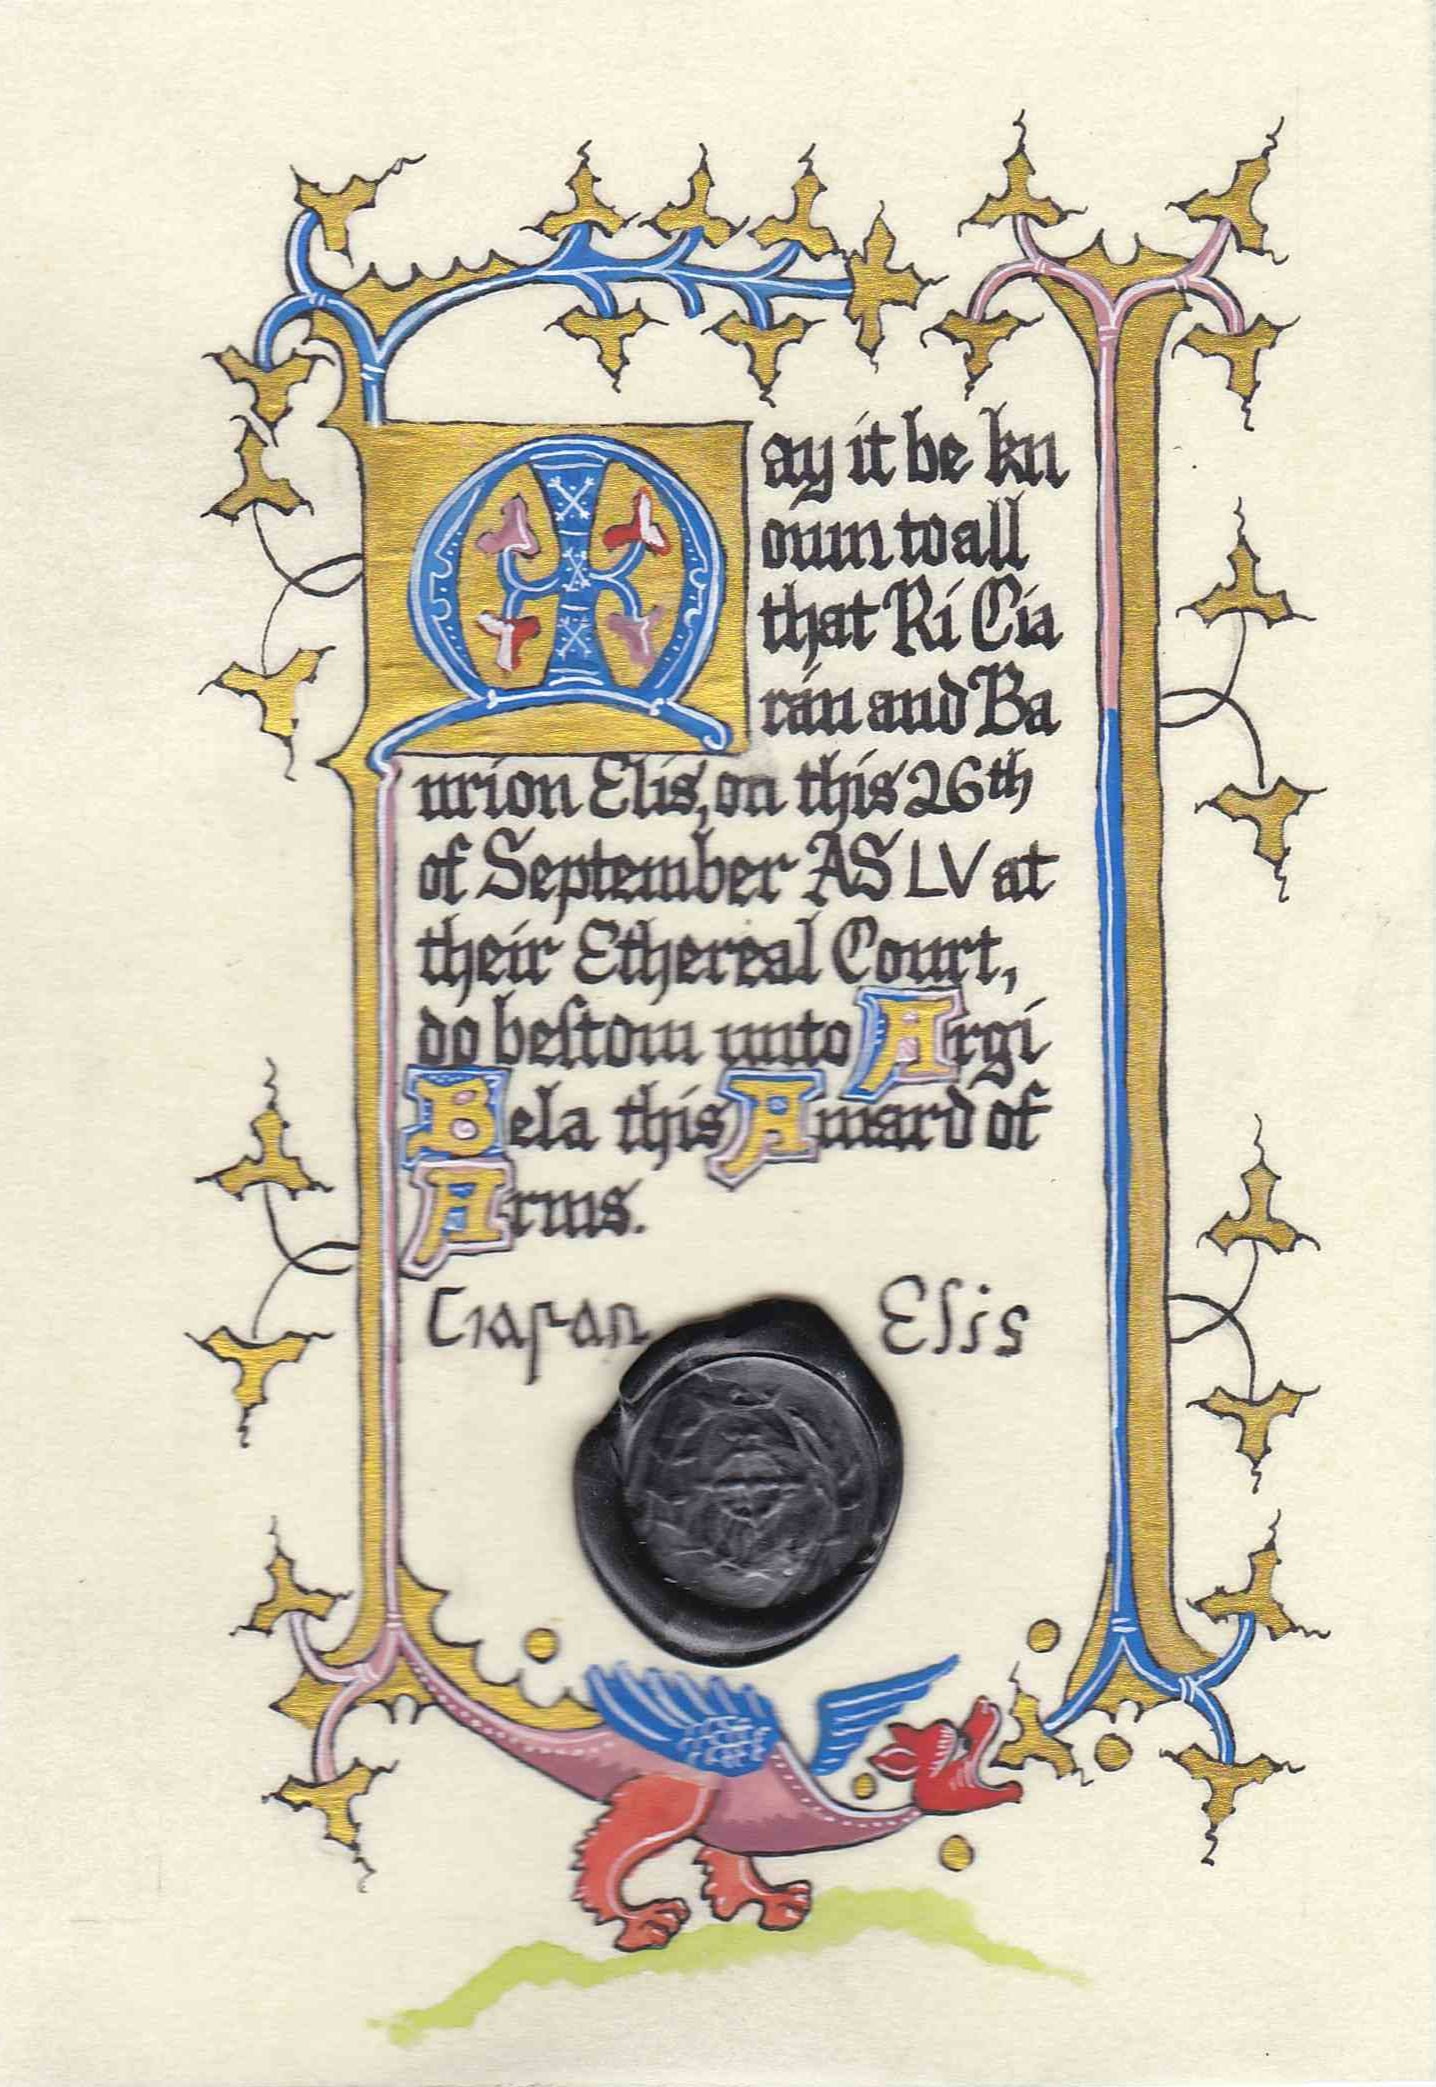 May it be kn
own to all
that Rí Cia
rán and Ba
nrion Elis, on this 26th
of September AS LV at
their Ethereal Court,
do beſtow unto Argi
Bela this Award of
Arms.
Ciaran Elis